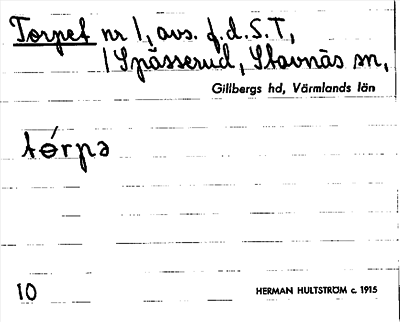 Torpet nr 1, avs. f.d. S.T,
1 Spässerud, Stavnäs sn,
Gillbergs hd, Värmlands län
tórpə
10 HERMAN HULTSTRÖM c. 1915